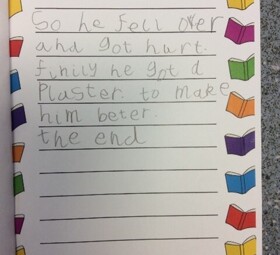 So he fell over
and got hurt.
finily he got d
Plaster. to make
him beter.
the end